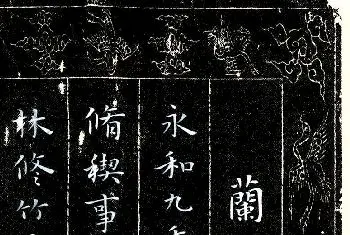 蘭
永和九
脩稧事
林脩竹